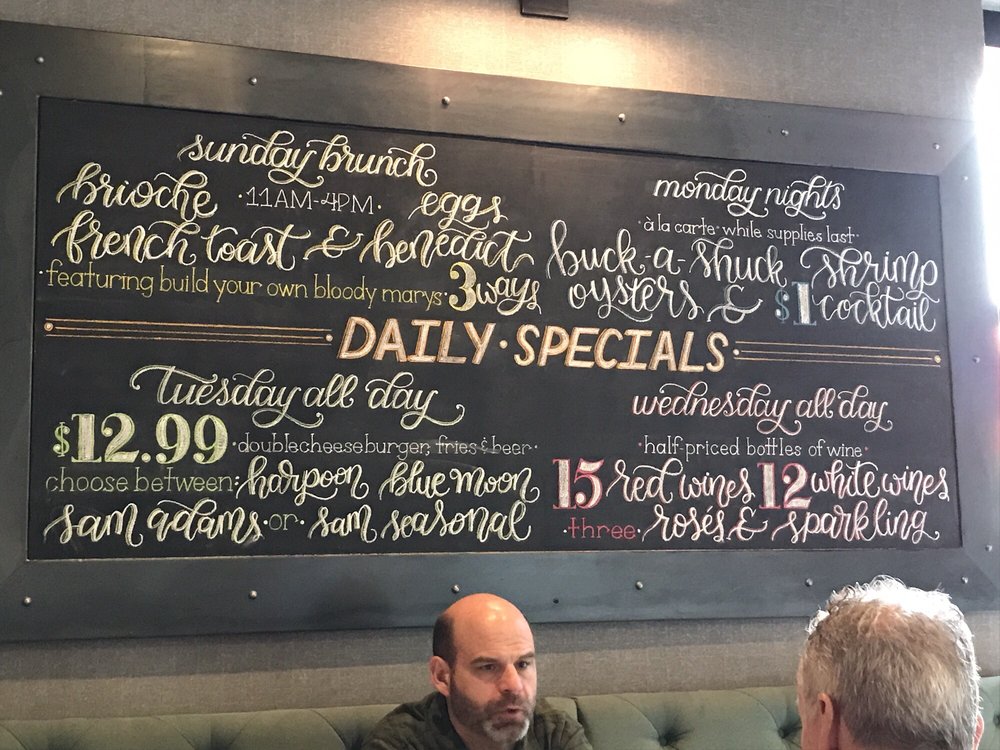 sunday brunch
·11AM-4PM·
brioche french toast & eggs benedict 3 ways
·featuring build your own bloody marys·
monday nights
·à la carte·while supplies last·
buck-a-shuck oysters & $1 shrimp cocktail
DAILY·SPECIALS
Tuesday all day
$12.99 ·double cheeseburger, fries & beer·
choose between: harpoon blue moon
sam adams·or·sam seasonal
wednesday all day
·half-priced bottles of wine·
15 red wines 12 white wines
three·rosés & sparkling